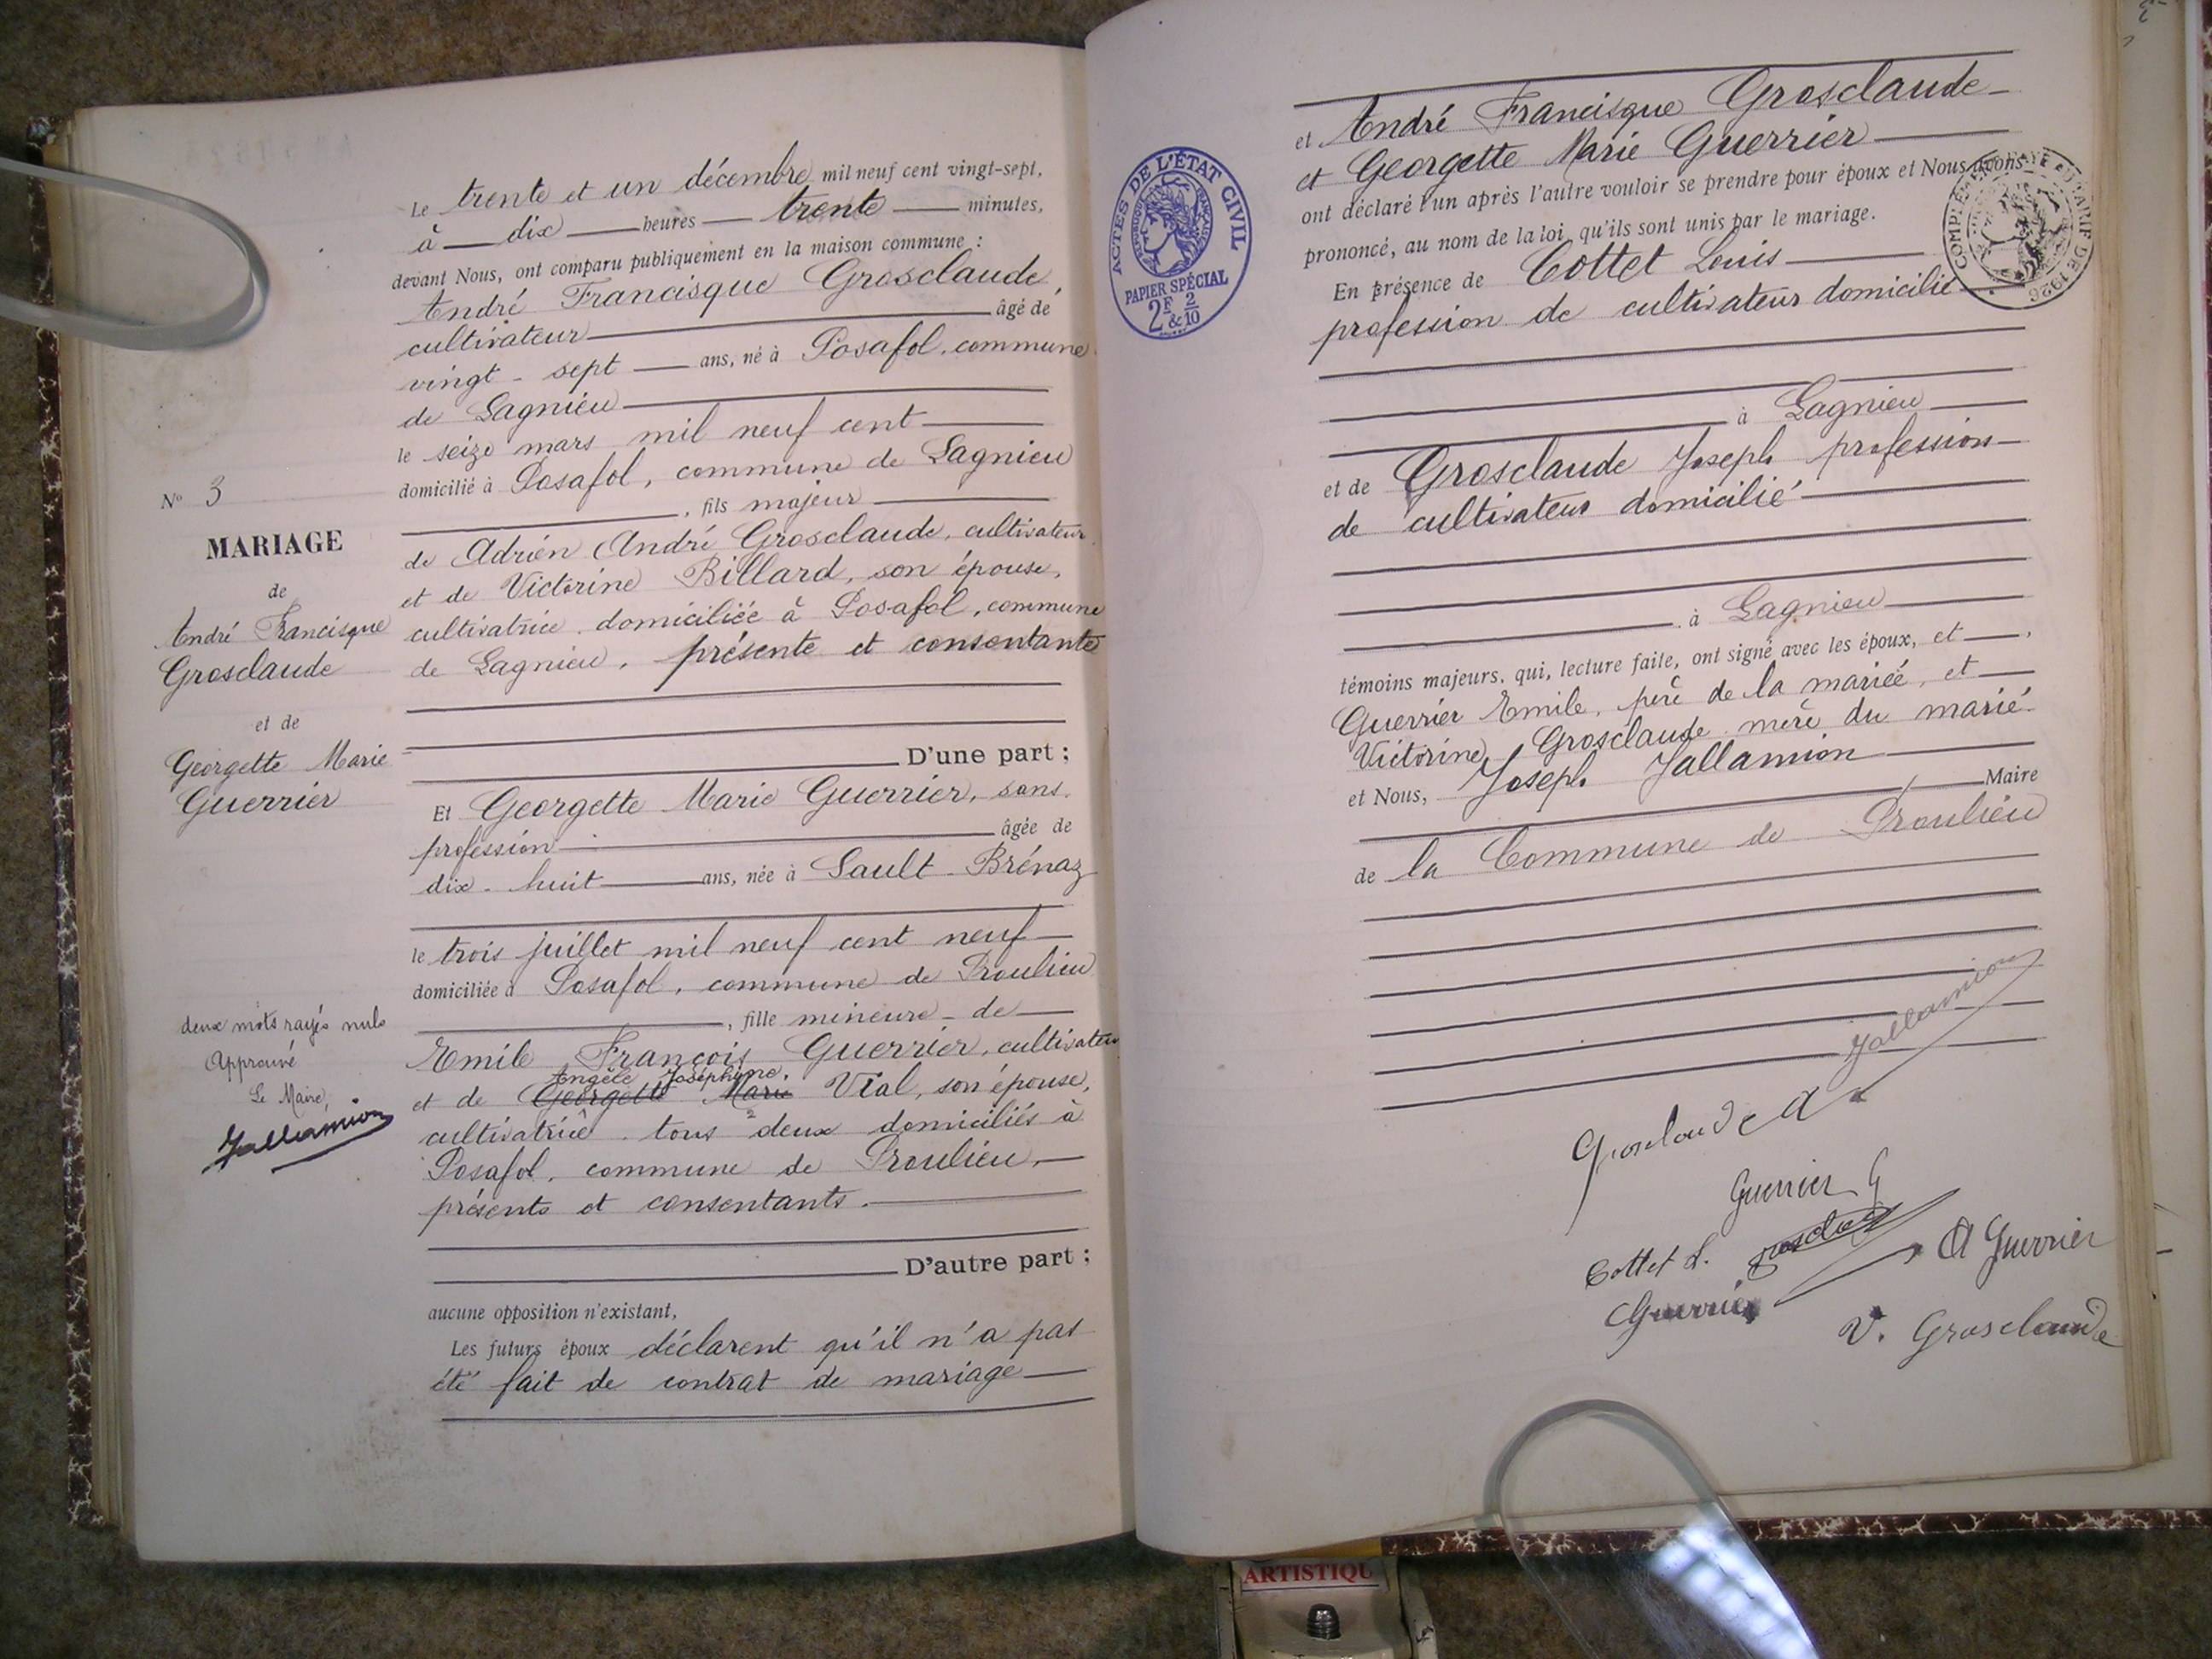 Le trente et un décembre mil neuf cent vingt-sept,
à dix heures trente minutes,
devant Nous, ont comparu publiquement en la maison commune :
André Francisque Grosclaude,
cultivateur âgé de
vingt-sept ans, né à Posafol, commune
de Lagnieu
le seize mars mil neuf cent
domicilié à Posafol, commune de Lagnieu
, fils majeur
de Adrien André Grosclaude, cultivateur
et de Victorine Billard, son épouse,
cultivatrice, domiciliée à Posafol, commune
de Lagnieu, présente et consentante
D'une part ;
Et Georgette Marie Guerrier, sans
profession âgée de
dix-huit ans, née à Sault-Brénaz
le trois juillet mil neuf cent neuf
domiciliée à Posafol, commune de Proulieu
, fille mineure de
Emile François Guerrier, cultivateur
Angèle Joséphine,
et de Georgette Marie Vial, son épouse,
cultivatrice, tous deux domiciliés à
Posafol, commune de Proulieu,
présents et consentants.
D'autre part ;
aucune opposition n'existant,
Les futurs époux déclarent qu'il n'a pas
été fait de contrat de mariage
N° 3
MARIAGE
de
André Francisque
Grosclaude
et de
Georgette Marie
Guerrier
deux mots rayés nuls
Approuvé
Le Maire,
Jallamion
ACTES DE L'ÉTAT CIVIL
RÉPUBLIQUE FRANÇAISE
PAPIER SPÉCIAL
2F & 2/10
et André Francisque Grosclaude
et Georgette Marie Guerrier
ont déclaré l'un après l'autre vouloir se prendre pour époux et Nous avons
prononcé, au nom de la loi, qu'ils sont unis par le mariage.
En présence de Cottet Louis
profession de cultivateur domicilié
à Lagnieu
et de Grosclaude Joseph profession
de cultivateur domicilié
à Lagnieu
témoins majeurs, qui, lecture faite, ont signé avec les époux, et
Guerrier Emile, père de la mariée, et
Victorine Grosclaude mère du marié
et Nous, Joseph Jallamion
Maire
de la Commune de Proulieu
Jallamion
Grosclaude A
Guerrier G
Cottet L.
A Guerrier
Guerrier
V. Grosclaude
ARTISTIQU